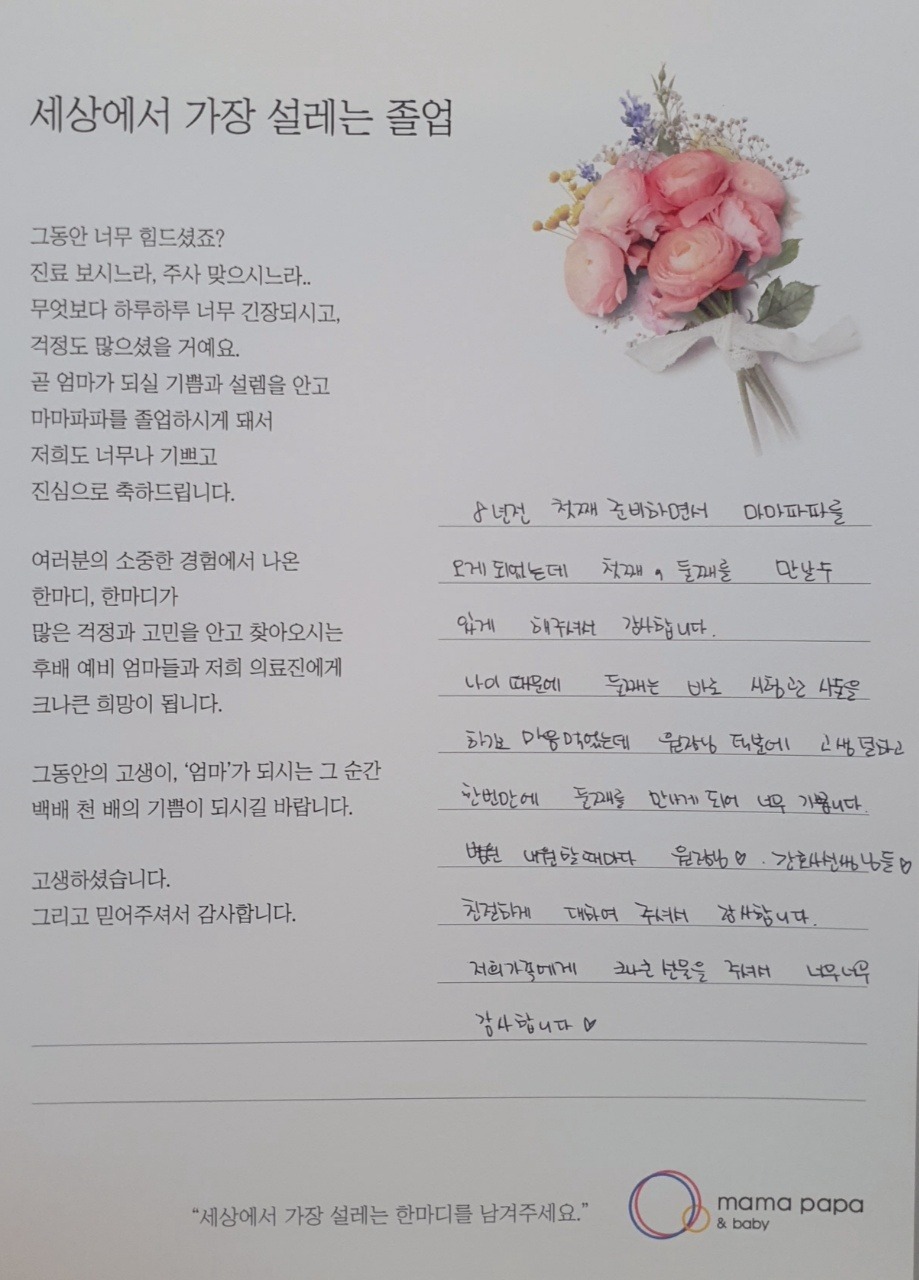 세상에서 가장 설레는 졸업
그동안 너무 힘드셨죠?
진료 보시느라, 주사 맞으시느라..
무엇보다 하루하루 너무 긴장되시고,
걱정도 많으셨을 거예요.
곧 엄마가 되실 기쁨과 설렘을 안고
마마파파를 졸업하시게 돼서
저희도 너무나 기쁘고
진심으로 축하드립니다.
여러분의 소중한 경험에서 나온
한마디, 한마디가
많은 걱정과 고민을 안고 찾아오시는
후배 예비 엄마들과 저희 의료진에게
크나큰 희망이 됩니다.
그동안의 고생이, ‘엄마’가 되시는 그 순간
백배 천 배의 기쁨이 되시길 바랍니다.
고생하셨습니다.
그리고 믿어주셔서 감사합니다.
8년전 첫째 준비하면서 마마파파를
오게 되었는데 첫째, 둘째를 만날수
있게 해주셔서 감사합니다.
나이 때문에 둘째는 바로 시험관 시술을
하고 마음먹었는데 원장님 덕분에 고생덜하고
한번만에 둘째를 만나게 되어 너무 기쁩니다.
병원 내원할때마다 원장님♡. 간호사선생님들♡
친절하게 대하여 주셔서 감사합니다.
저희가족에게 크나큰 선물을 주셔서 너무너무
감사합니다♡
“세상에서 가장 설레는 한마디를 남겨주세요.”
mama papa
& baby